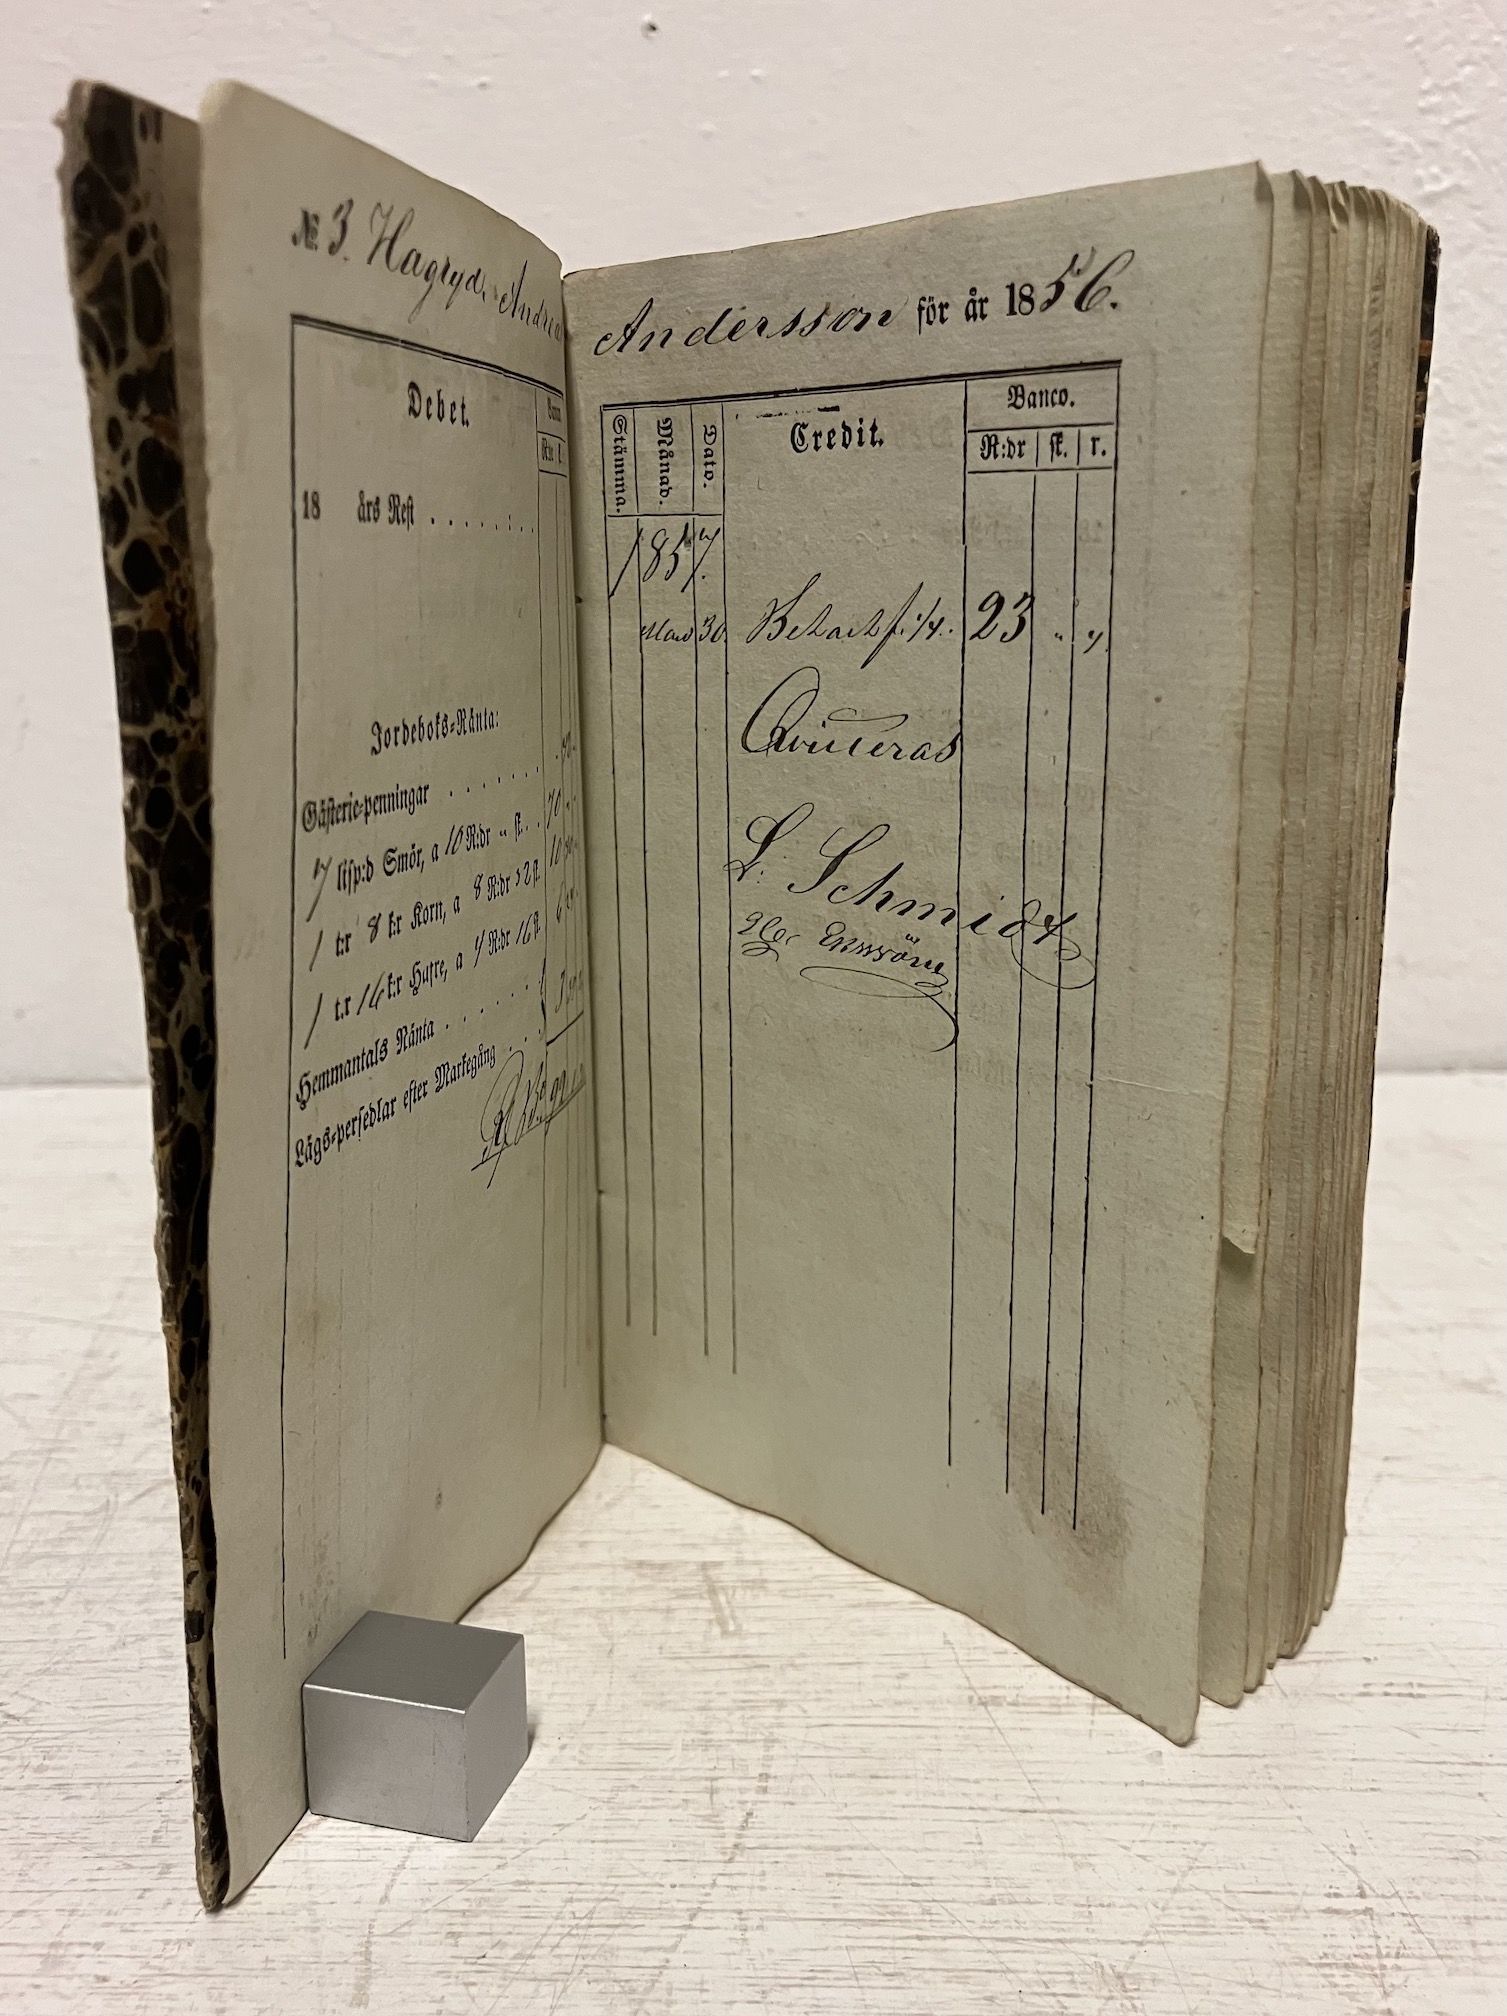 № 3. Hagryd. Andrea
Debet.
18 års Rest . . . . . .
Jordeboks-Ränta:
Gästerie-penningar . . . . . .
7 lisp:d Smör, a 10 R:dr " sk. . 70
1 t:r 8 k:r Korn, a 8 R:dr 32 sk. 10
1 t:r 16 k:r Hafre, a 4 R:dr 16 sk. 6
Hemmantals Ränta . . . . . .
Lägs-persedlar efter Markegång . . .
Andersson för år 1856.
Stämma. Månad. Dato. Credit. Banco.
R:dr sk. r.
1857.
Mars 30 Betalt f. 1/4. 23 " "
Qvitteras
L. Schmidt